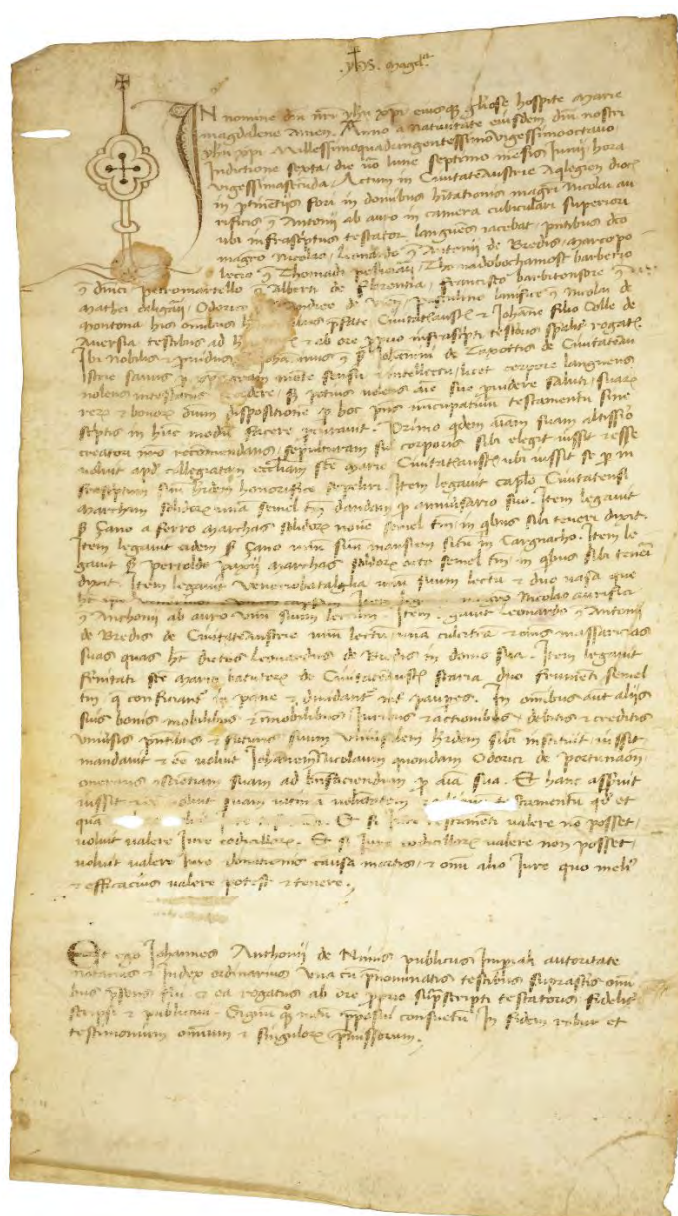 yhs. magda
IN nomine dni nri yhu xpi eiusqz gliose hospite Marie
magdalene Amen. Anno a nativitate eiusdem dni nostri
yhu xpi Millessimoquadringentessimovigessimooctavo
Indictione sexta, die vo lune septimo mensis Junii, hora
vigessimasecunda, Actum in Civitate Austrie Aqlegien dioc
in ptinetiis fori in domibus hitationis magri Nicolai au
rificis q Antonii ab auro in camera cubiculari superiori
ubi infrascptus testator languens iacebat, pntibus dco
magro Nicolao, Leonardo q Antonii de Bredis, Marco po
lecio q Thomadi peliciari, barberio
q dnici petromartello q Alberti de Florentia, Francisco barbitonsore q
Mathei, Odorico Andree de, lanifice q Nicolai de
montona his omibus pfate Civitat Aust & Johane filio Colle de
Aversia testibus ad h & ab ore pprio infrascpti testoris spealit rogatis
Ibi Nobilis & pvidus q Johannii de de Civitate Au
strie sanus p xpi gram mete sensu & intellectu, licet corpore languens
nolens intestatus decedere, sz potius volens aie sue pvidere saluti, suarz
rerz & bonorz dium dispositione p hoc pns nucupativu testamentu sine
sciptis in huc modu facere pcuravit. Primo qdem aiam suam altissio
creatori nro recomendans, sepulturam sui corporis sibi elegit iussit & esse
voluit apd collegiatam eccliam sce Marie Civitat Aust ubi iussit se p in
frascptum suu hredem honorifice sepeliri. Item legavit caplo Civitatensi
Marcham solidorz una semel tm dandam p anniversario suo. Item legavit
s Zano a ferro Marchas solidorz nove semel tm in qbus sibi teneri dixit.
Item legavit eidem s Zano unu suu mansum situ in Cargnacho. Item le
gavit s Pertoldo Marchas solidorz octo semel tm in qbus sibi teneri
dixit. Item legavit unu suum lectu & duo vasa que
ht Nicolao aurifici
q Anthonii ab auro unu suum lectum. Item legavit Leonardo q Antonii
de Bredis de Civitate Austrie unu lectu, una cultra & oms massaricias
suas quas ht dictus Leonardus de Bredis in domo sua. Item legavit
frnitati sce Marie batutorz de Civitat Aust staria duo frumeti semel
tm q conficiant in pane & dividant int paupes. In omibus aut aliis
suis bonis mobilibus & imobilibus Juribus & actionibus debitis & creditis
univsis pntibus & futuris suum univsalem hredem sibi instituit, iussit
mandavit & ee voluit Johanem Nicolaum quondam Odorici de portunaon
onerans csietiam suam ad bnfaciendum p aia sua. Et hanc asseruit
iussit voluit suam ultima voluntatem testamentu qd et
qua. Et si Jure testameti valere no posset,
voluit valere Jure codicillorz. Et si Jure codicillorz valere non posset,
voluit valere Jure donationis causa mortis, & omi alio Jure quo meli9
& efficacius valere potest & tenere.
Et ego Johannes Anthonii de Nimis publicus Impiali autoritate
notarius & Judex ordinarius una cu pnominatis testibus suprascptis omi
bus psens fui & ea rogatus ab ore pprio supscripti testatoris fidelit
scripsi & publicavi. Signuqz meu apposui consuetu in fidem robur et
testimonium omium & singulorz pmissorum.